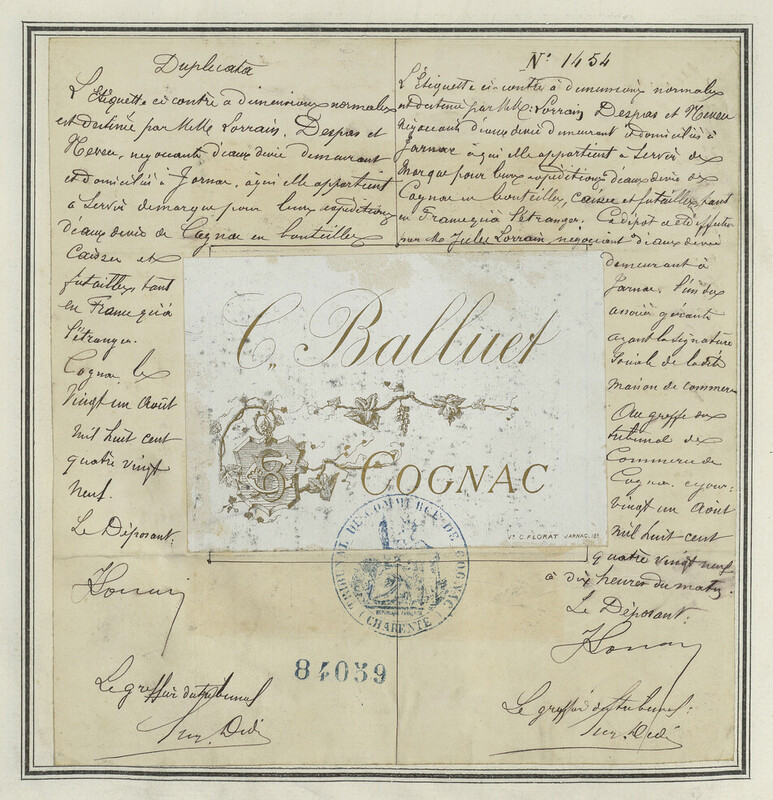 Duplicata
L'Etiquette ci contre a dimensions normales
est destinée par MM. Lorrain, Despas et
Neveu, négociants d'eaux devie demeurant
et domiciliés à Jarnac, à qui elle appartient
à servir de marque pour leurs expéditions
d'eaux devie de Cognac en bouteilles
Caisses et
futailles tant
en France qu'à
l'étranger.
Cognac le
Vingt un Août
Mil huit cent
quatre vingt
neuf.
Le Déposant:
Le greffier du tribunal
Nº 1454
L'Etiquette ci-contre à dimensions normales
est destinée par MM. Lorrain Despas et Neveu
négociants d'eaux devie demeurant et domiciliés à
Jarnac à qui elle appartient à servir de
Marque pour leurs expéditions d'eaux devie de
Cognac en bouteilles, Caisses et futailles tant
en France qu'à l'étranger. Ce dépôt a été effectué
par Mr Jules Lorrain négociant d'eaux devie
demeurant à
Jarnac. l'un des
associés gérants
ayant la signature
Sociale de la dite
Maison de commerce
Au greffe du
tribunal de
Commerce de
Cognac. ce jour:
Vingt un Août
Mil huit cent
quatre vingt neuf
à dix heures du matin.
Le Déposant:
Le greffier du tribunal:
C. Balluet
COGNAC
Vve C. FLORAT JARNAC.
TRIBUNAL DE COMMERCE DE COGNAC
(CHARENTE)
84059